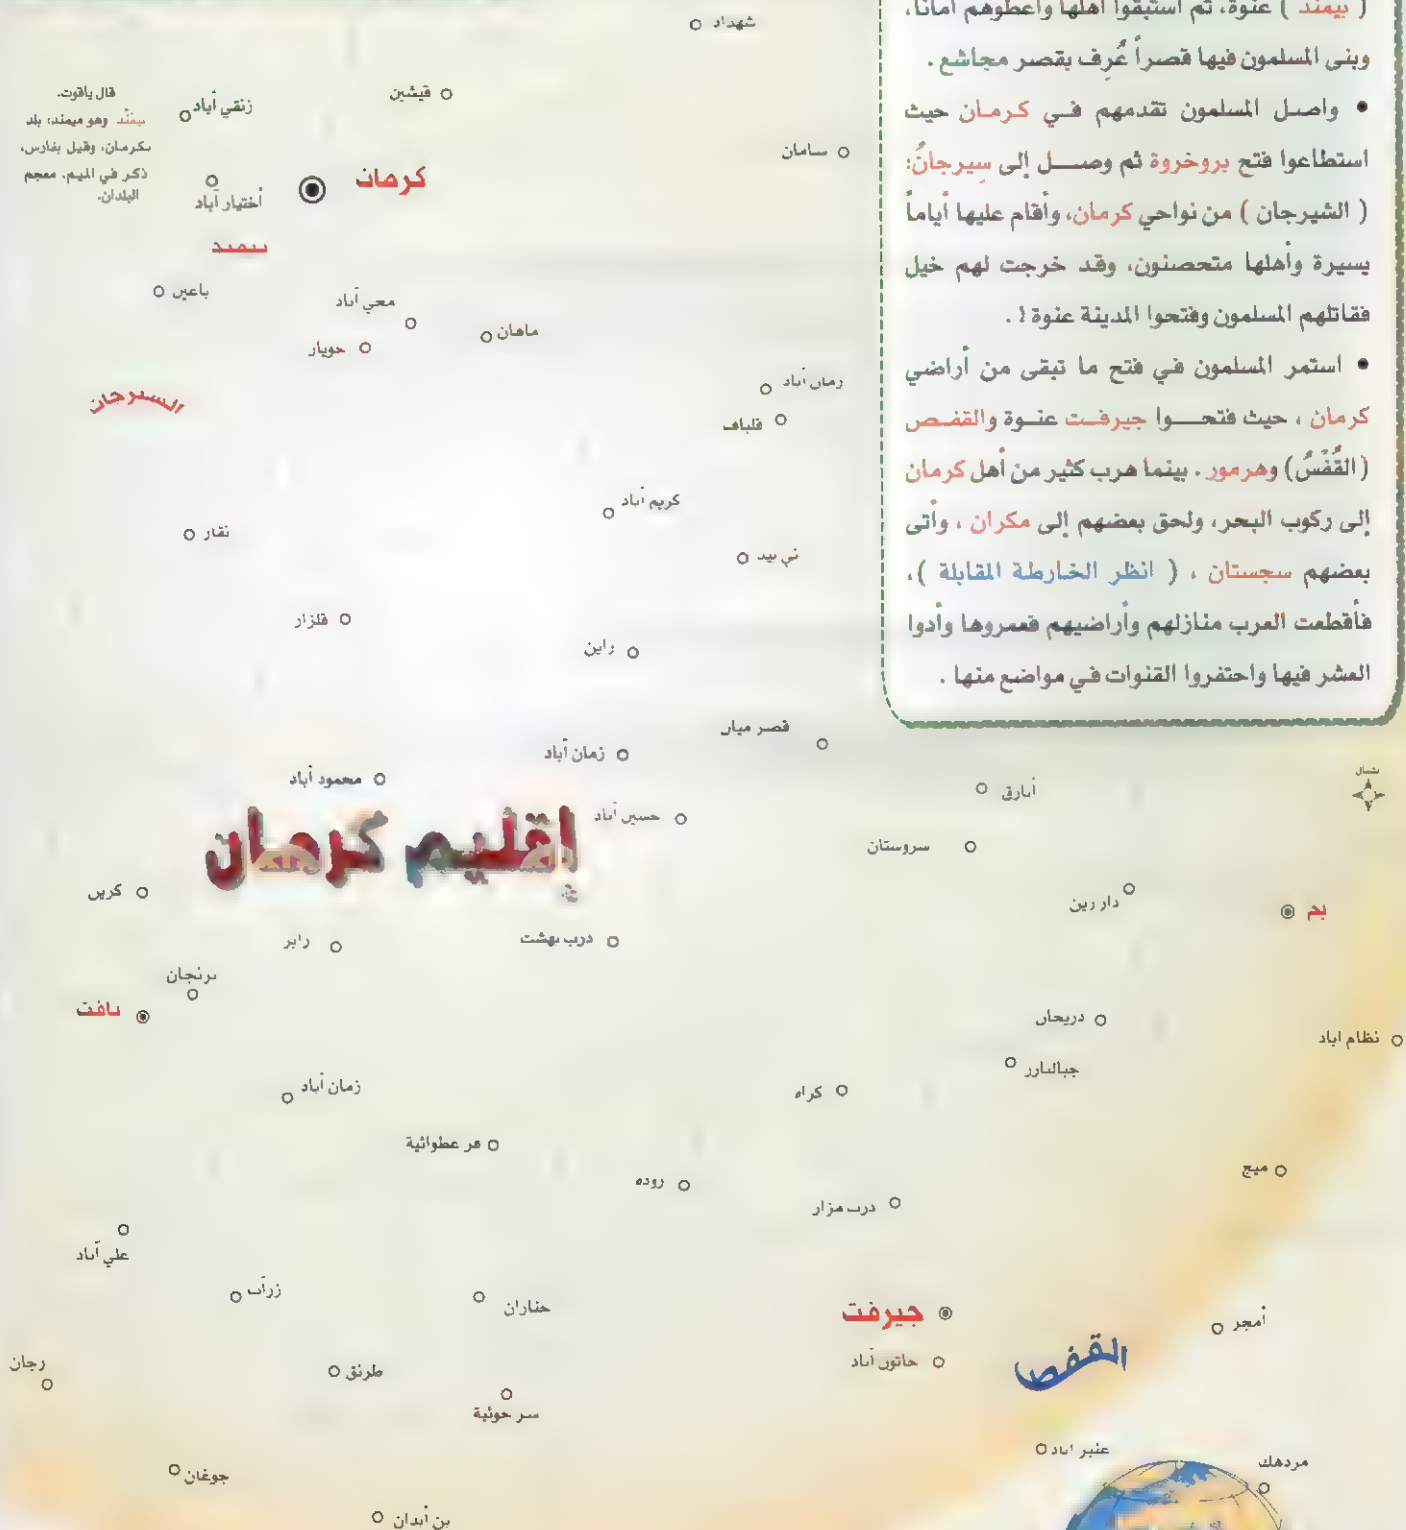 ( بيمند ) عنوة، ثم استبقوا أهلها وأعطوهم أماناً،
وبنى المسلمون فيها قصراً عُرِف بقصر مجاشع .
• واصل المسلمون تقدمهم في كرمان حيث
استطاعوا فتح بروخروة ثم وصل إلى سِيرجانُ:
( الشيرجان ) من نواحي كرمان، وأقام عليها أياماً
يسيرة وأهلها متحصنون، وقد خرجت لهم خيل
فقاتلهم المسلمون وفتحوا المدينة عنوة ! .
• استمر المسلمون في فتح ما تبقى من أراضي
كرمان ، حيث فتحوا جيرفت عنوة والقفص
(القُفْسُ) وهرمور . بينما هرب كثير من أهل كرمان
إلى ركوب البحر، ولحق بعضهم إلى مكران ، وأتى
بعضهم سجستان ، ( انظر الخارطة المقابلة )،
فأقطعت العرب منازلهم وأراضيهم فعمروها وأدوا
العشر فيها واحتفروا القنوات في مواضع منها .
شهداد
قيشين
زنقي آباد
قال ياقوت.
بيمَنْد وهو ميمند: بلد
بكرمان، وقيل بفارس،
ذكر في الميم. معجم
البلدان.
سامان
كرمان
أختيار آباد
بيمند
باغين
محي آباد
ماهان
جوبار
رمان آباد
السيرجان
قلباف
كريم آباد
نقار
ني بيد
قلزار
راين
قصر ميان
زمان آباد
محمود آباد
شمال
أبارق
حسين آباد
إقليم كرمان
سروستان
كرين
دار رين
بم
رابر
درب بهشت
برنجان
بافت
دريجان
نظام اباد
جبالبارز
زمان آباد
كراه
هر عطوائية
ميج
روده
درب مزار
علي آباد
زرآب
حناران
جيرفت
أمجر
القفص
خاتون آباد
رجان
طرنق
سر حوئية
عنبر اباد
مردهك
جوغان
بن أبدان